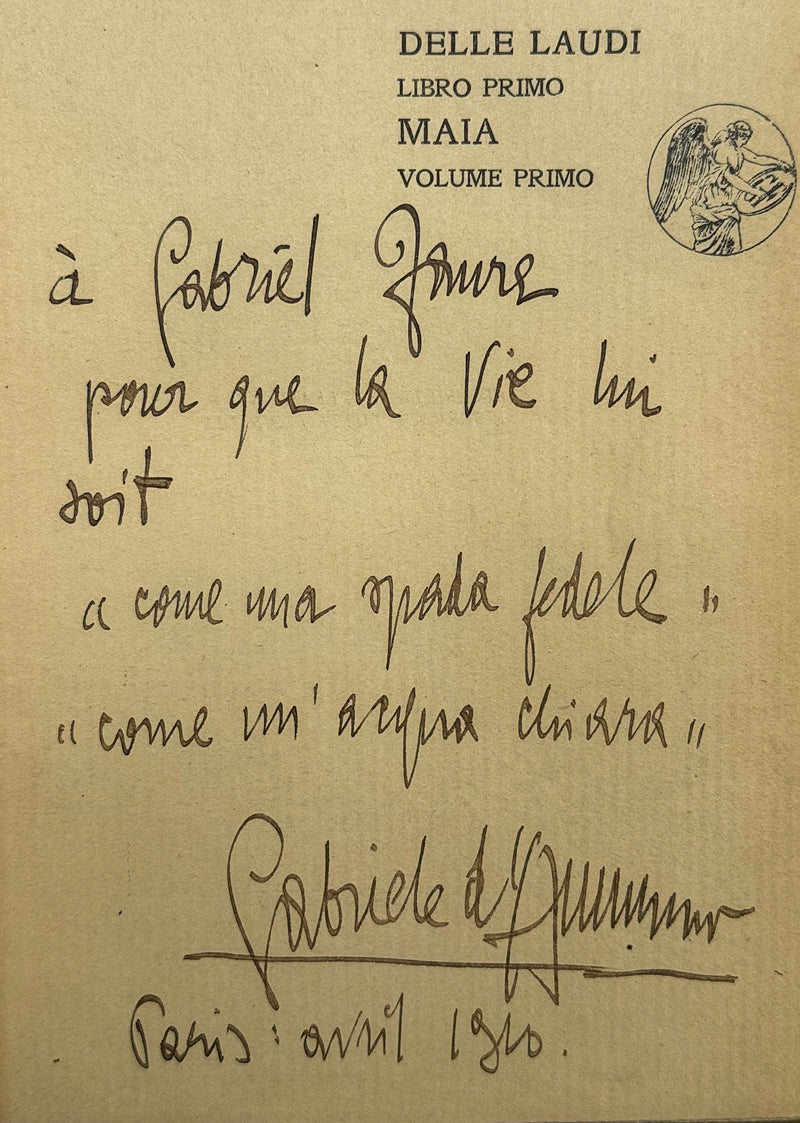 DELLE LAUDI
LIBRO PRIMO
MAIA
VOLUME PRIMO
à Gabriel Faure
pour que la Vie lui
soit
"come una spada fedele"
"come un'acqua chiara"
Gabriele d'Annunzio
Paris: avril 1910.